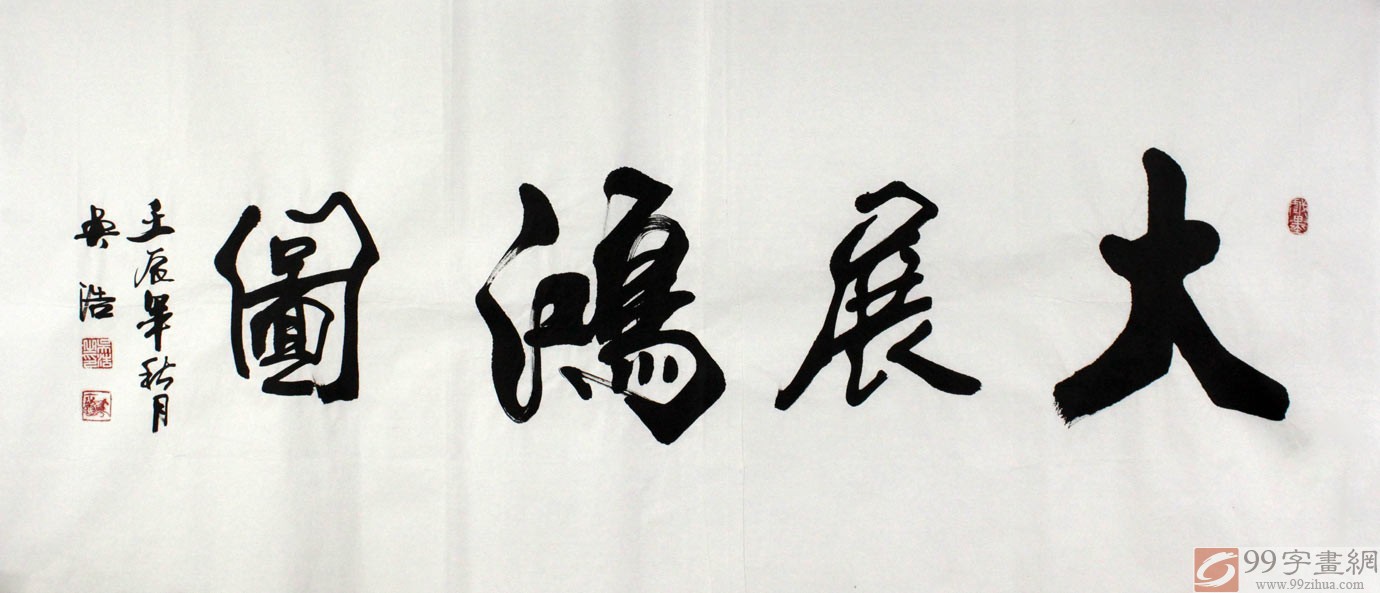 大展鴻圖
壬辰年秋月
吴浩
99字畫網
www.99zihua.com